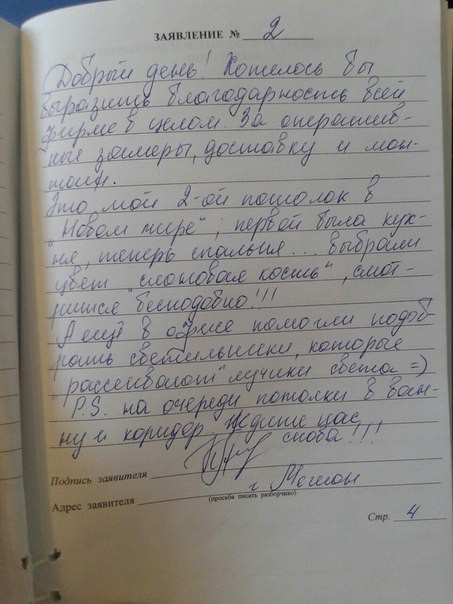 ЗАЯВЛЕНИЕ № 2
Добрый день! Хотелось бы
выразить благодарность всей
фирме в целом. За оператив-
ные замеры, доставку и мон-
таж.
Это мой 2-ой потолок в
"Новом мире", первой была кух-
ня, теперь спальня... выбрали
цвет "слоновая кость", смот-
рится "бесподобно!!!
А ещё в офисе помогли подоб-
рать светильники, которые
"рассеивают" лучики света =)
P.S. на очереди потолки в ван-
ну и коридор. Ждите нас
снова!!!
Подпись заявителя
г. Мегион
Адрес заявителя
(просьба писать разборчиво)
Стр. 4